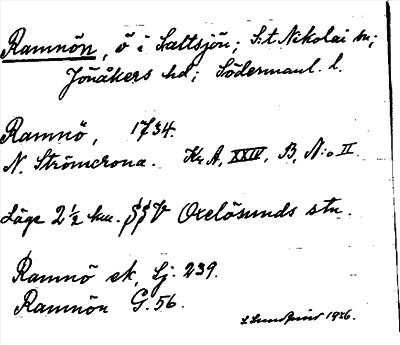 Ramnön, ö i Saltsjön; S:t Nikolai sn;
Jönåkers hd; Södermanl. l.
Ramnö, 1734.
N. Strömcrona. Kr. A, XXIV, B, N:o II.
Läge 2 1/2 km. SSV Oxelösunds stn.
Ramnö ek, Lj. 239.
Ramnön G. 56.
1926.